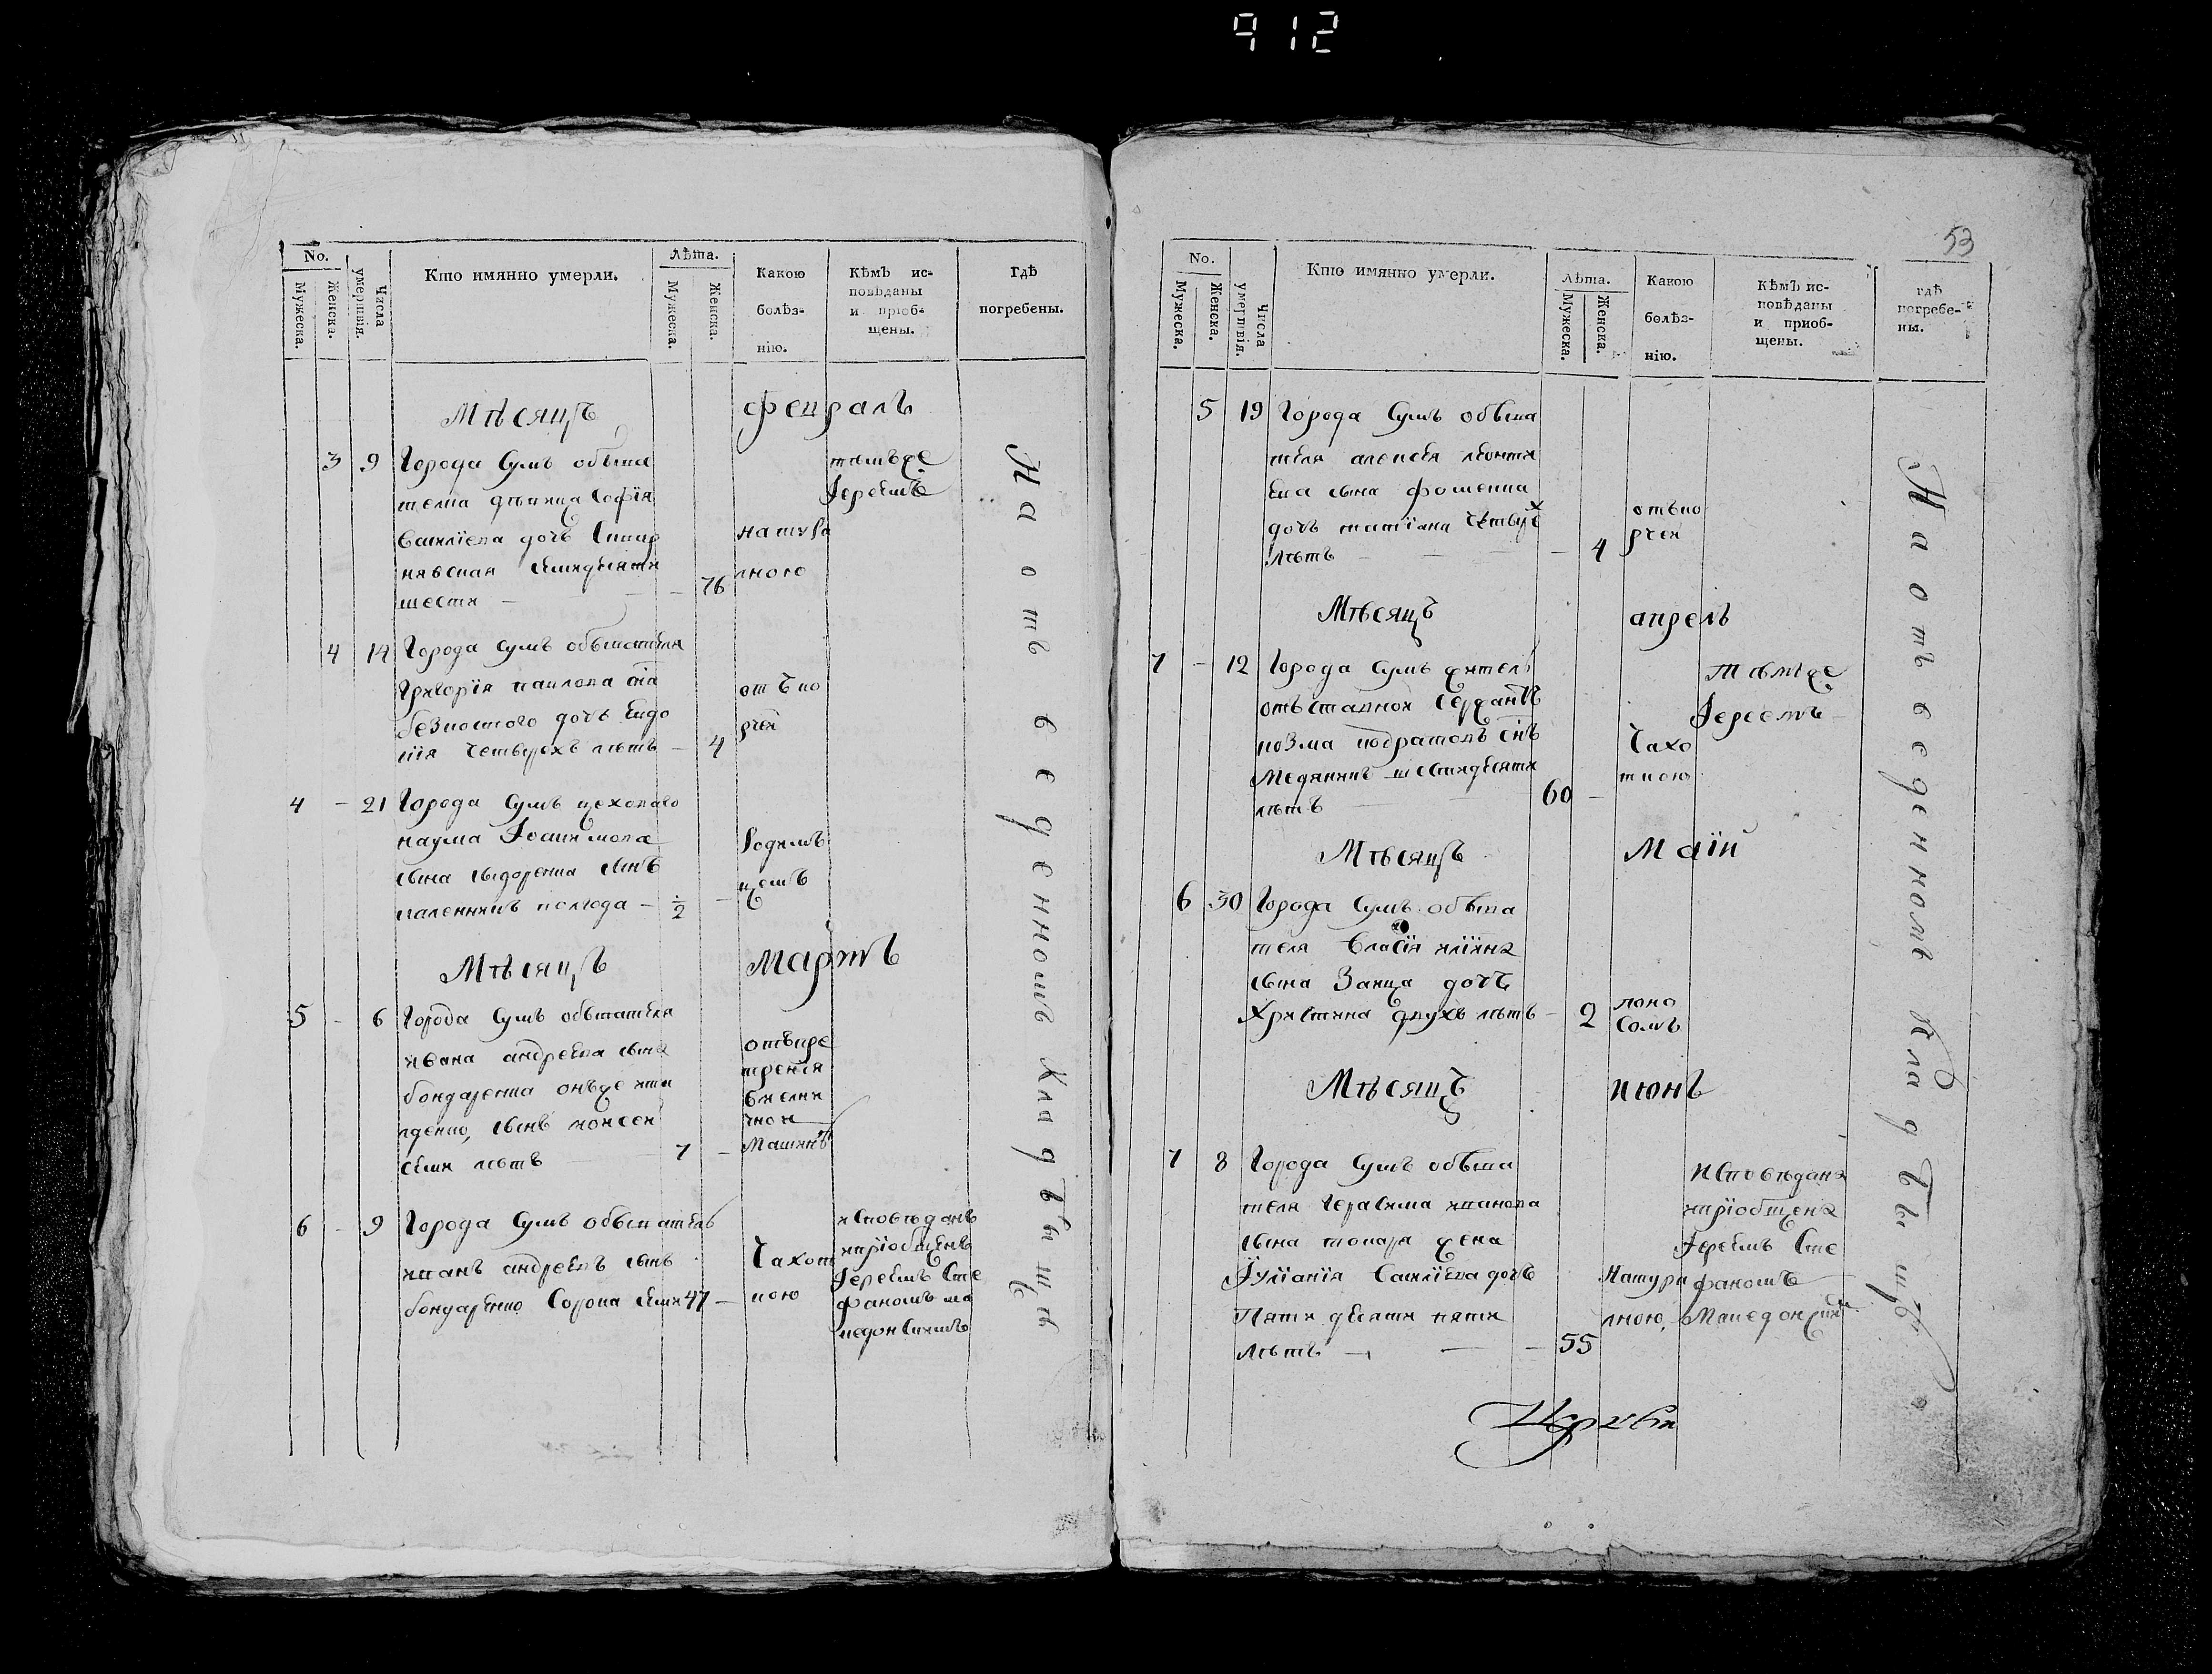 912
No.
Мужеска.
Женска.
Числа умертвія.
Кто имянно умерли.
Лѣта.
Мужеска.
Женска.
Какою
болѣз-
нію.
Кѣмъ ис-
повѣданы
и приоб-
щены.
Гдѣ
погребены.
Мѣсяцъ февраль
3 9 Города Сумъ обыва
телка Софія
Василіева дочь
семидесяти
шести 76
натура
лною
тымъже
Іереемъ
4 14 Города Сумъ обывателя
Григорія павлова сна
безкостого дочь Евдо
кія четырехъ лѣтъ 4
отъ ко
рчи
4 - 21 Города Сумъ цеховаго
наума
сына сидоренка сынъ
полгода - 1/2 -
Родим
цемъ
Мѣсяцъ мартъ
5 - 6 Города Сумъ обывателя
ивана андреева сына
бондаренка онъже
сынъ моисей
семи лѣтъ 7 -
6 - 9 Города Сумъ обыватель
иванъ андреевъ сынъ
бондаренко Сорока семи 47 -
Чахот
кою
исповѣданъ
и пріобщенъ
Іереемъ Сте
фаномъ ма
кедонскимъ
На отведенномъ кладбищѣ
53
No.
Мужеска.
Женска.
Числа умертвія.
Кто имянно умерли.
Лѣта.
Мужеска.
Женска.
Какою
болѣз-
нію.
Кѣмъ ис-
повѣданы
и приоб-
щены.
гдѣ
погребе-
ны.
5 19 Города Сумъ обыва
теля алексея леонтя
ева сына фоменка
дочь татіана четырех
лѣтъ - 4
отъко
рчи
Мѣсяцъ апрель
7 - 12 Города Сумъ житель
отъставной сержантъ
козма кодратовъ снъ
Медяникъ шестидесяти
лѣтъ 60 -
Чахо
ткою
тымже
Іереемъ
Мѣсяцъ Маій
6 30 Города Сумъ обыва
теля власія иліина
сына Заица дочь
Христина двухъ лѣтъ - 2
поно
сомъ
Мѣсяцъ июнь
7 8 Города Сумъ обыва
теля Герасима иванова
сына токаря жена
Іуліанія Василіева дочь
Пяти десяти пяти
лѣтъ - 55
Натура
лною,
исповѣдана
и пріобщена
Іереемъ Сте
фаномъ
Македонским
На отведенномъ кладбищѣ